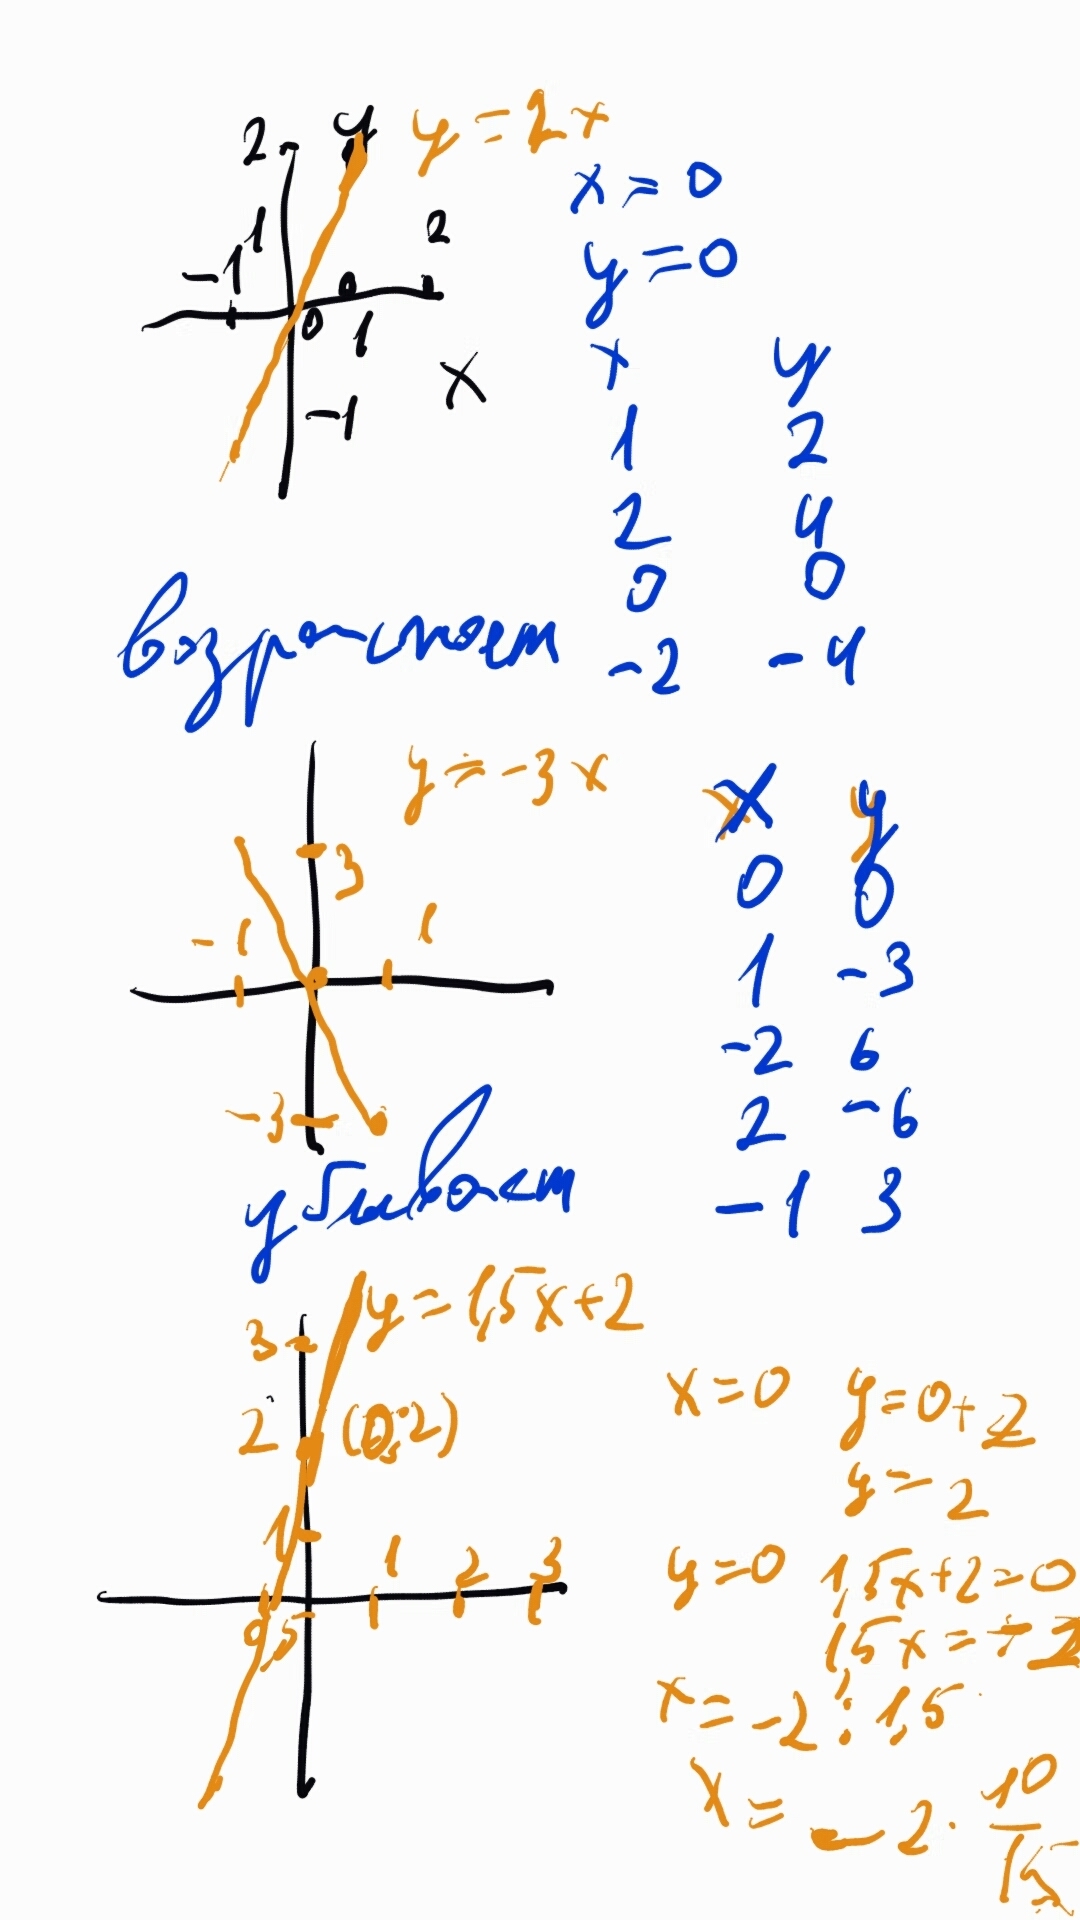 2 y y = 2x
x = 0
1 2
-1 y = 0
0 1
x y
x
-1
1 2
2 4
0 0
возрастает
-2 -4
y = -3x
x y
3 0 0
-1 1
1 -3
-2 6
-3 2 -6
убывает
-1 3
y = 1,5x+2
3
x = 0 y = 0 + 2
2 (0;2)
y = 2
1
1 2 3
y = 0 1,5x+2=0
0,5
1,5x = -2
x = -2 : 1,5
x = -2 · 10/15